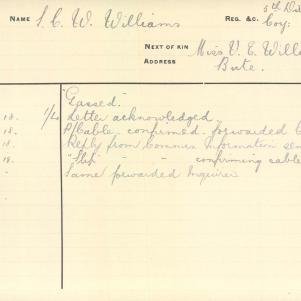 NAME S. C. W. Williams REG. &C. 5th Di
Coy:
NEXT OF KIN Miss V. E. Willi
ADDRESS Bute.
"Gassed."
18. Letter acknowledged
18. P/Cable confirmed forwarded
18. Reply from Common Information sen
18. "Slip" - - confirming cable
" Same forwarded Inquirer